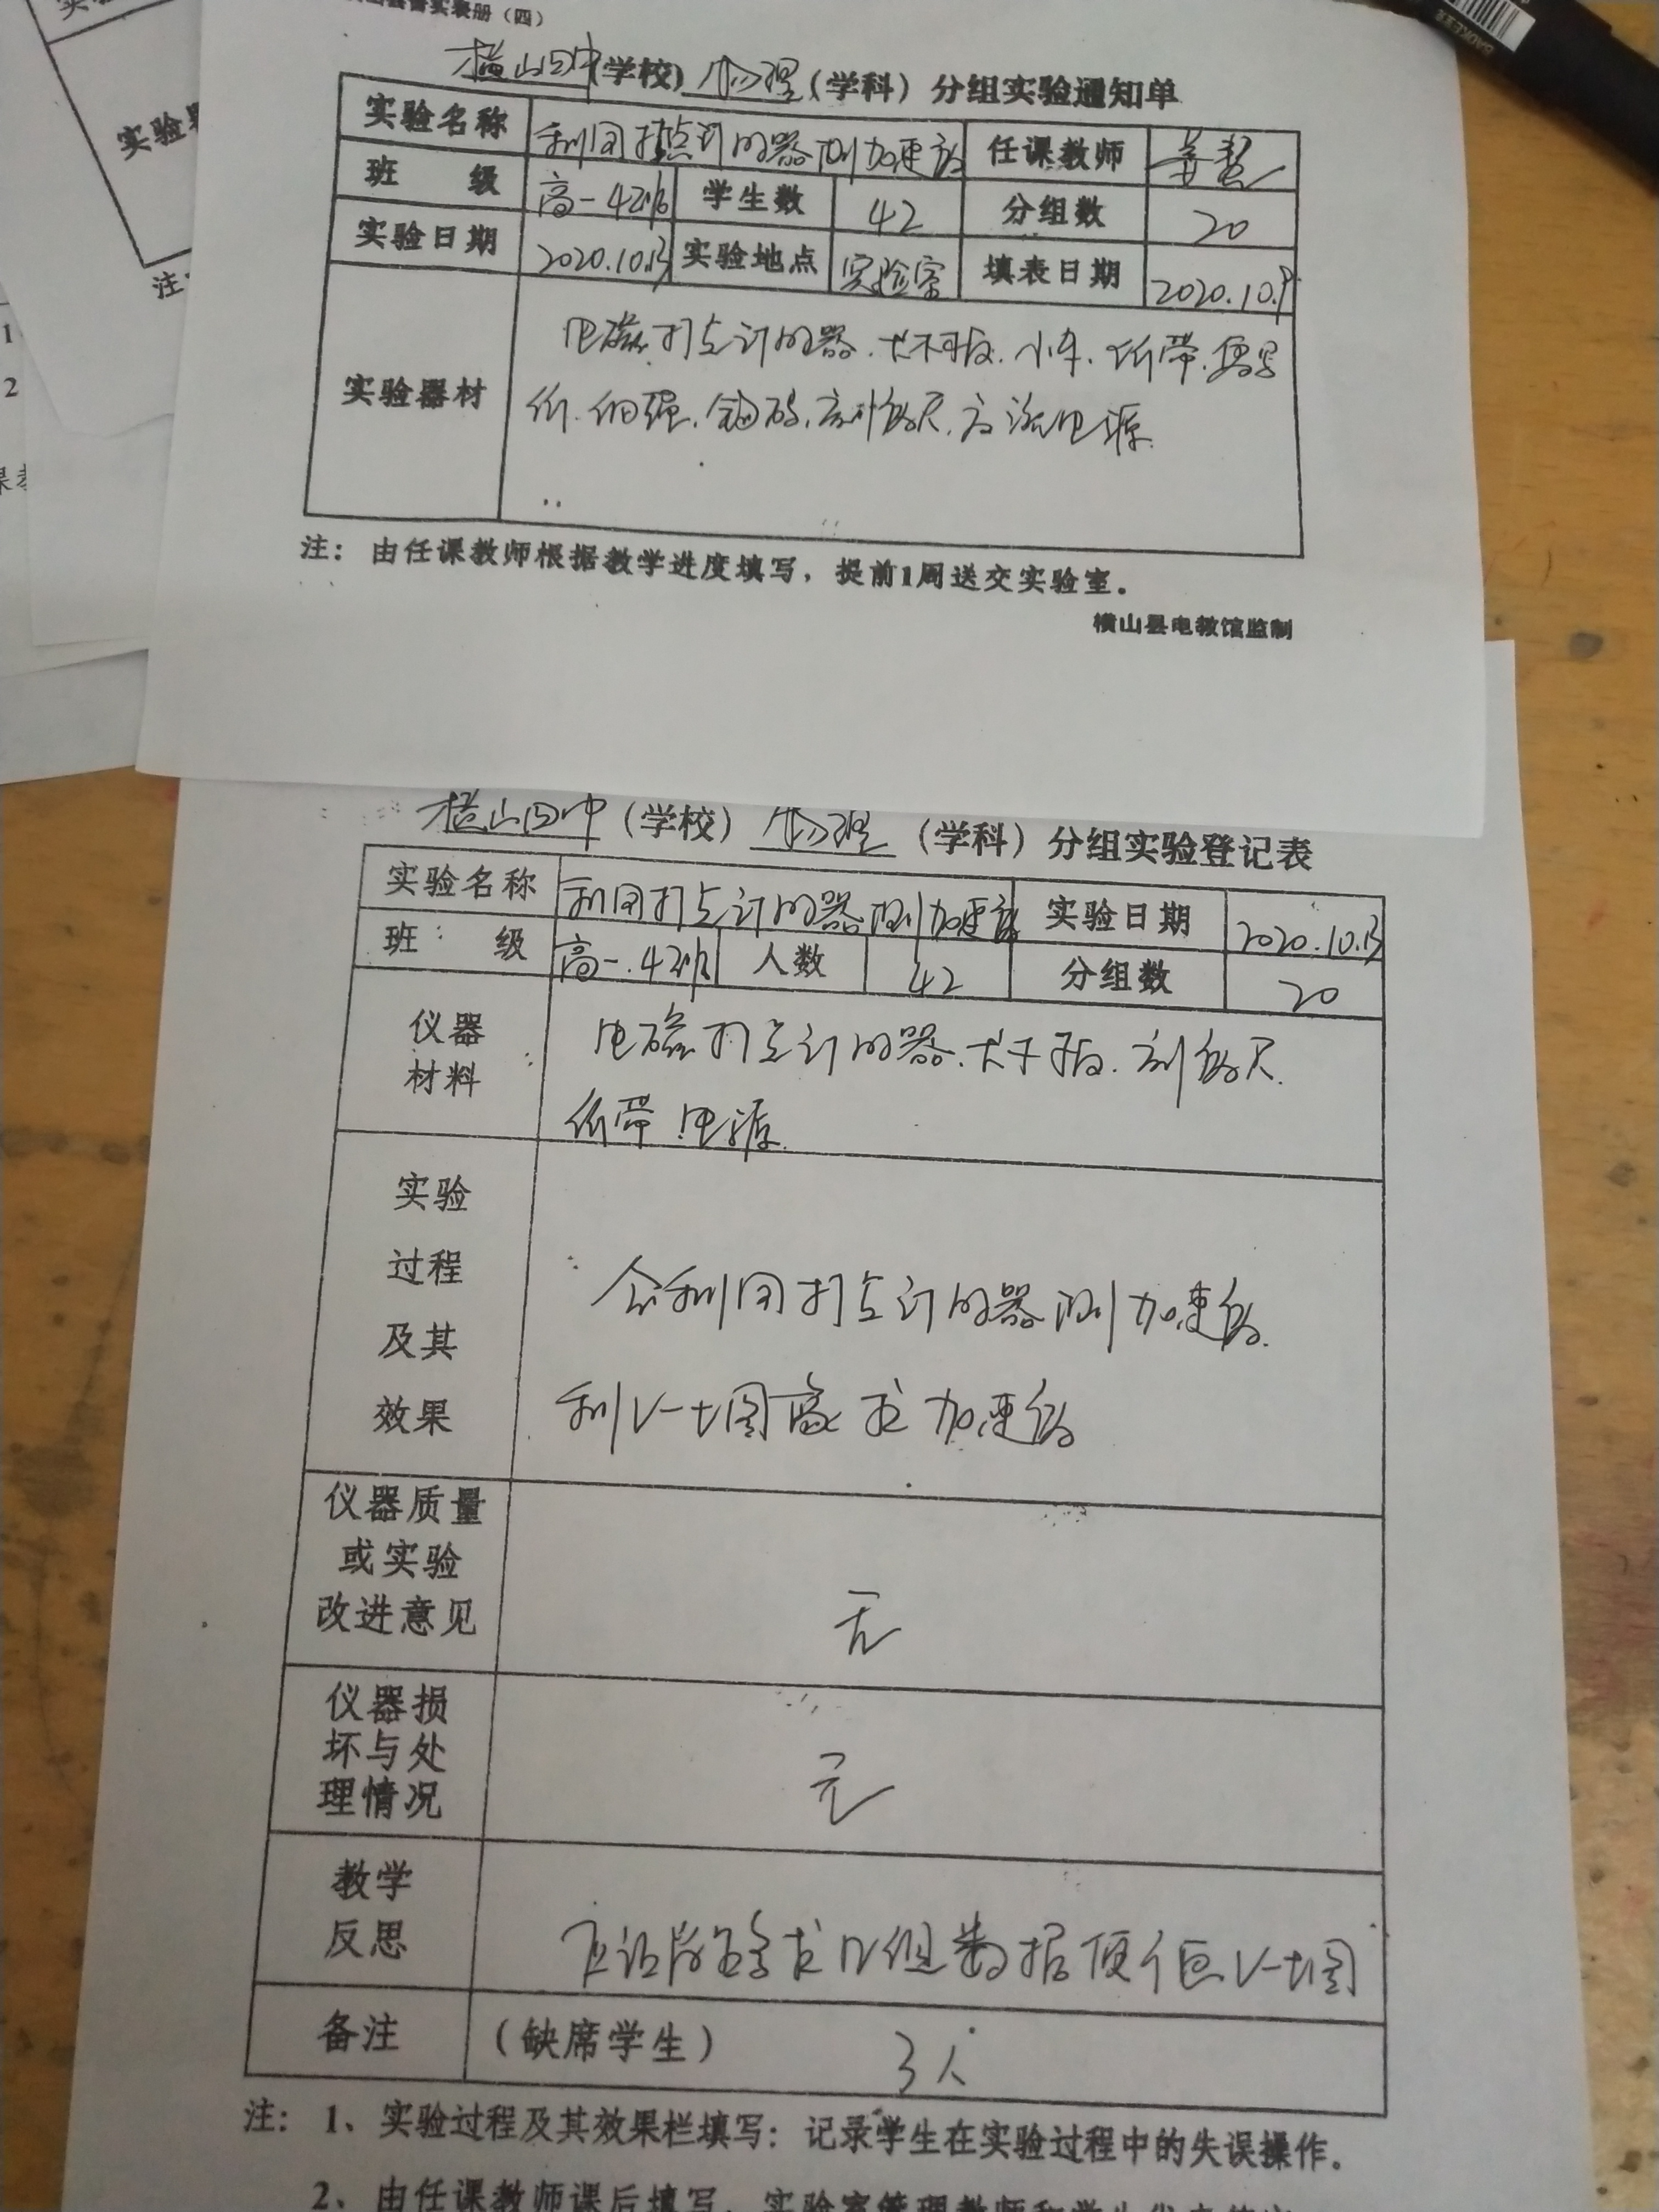 实表册（四）
横山四中（学校）物理（学科）分组实验通知单
实验名称 利用打点计时器测加速度 任课教师
班 级 高一42班 学生数 42 分组数 20
实验日期 2020.10.13 实验地点 实验室 填表日期 2020.10.9
实验器材 电磁打点计时器.长木板.小车.纸带.复写
纸.细绳.钩码.刻度尺.交流电源.
注：由任课教师根据教学进度填写，提前1周送交实验室。
横山县电教馆监制
横山四中（学校）物理（学科）分组实验登记表
实验名称 利用打点计时器测加速度 实验日期 2020.10.13
班 级 高一.42班 人数 42 分组数 20
仪器
材料
电磁打点计时器.长木板.刻度尺.
纸带.电源.
实验
过程
及其
效果
会利用打点计时器测加速度.
利V-t图像求加速度
仪器质量
或实验
改进意见
无
仪器损
坏与处
理情况
无
教学
反思
应让学生多求几组数据便作V-t图
备注 （缺席学生） 3人
注：1、实验过程及其效果栏填写：记录学生在实验过程中的失误操作。
2、由任课教师课后填写，实验室管理教师和学生代表签字
实验
注：
1
2